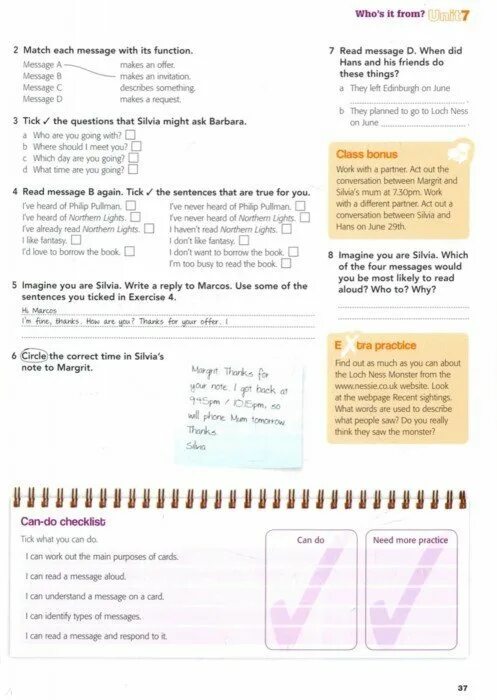 Who's it from? Unit 7
2 Match each message with its function.
Message A makes an offer.
Message B makes an invitation.
Message C describes something.
Message D makes a request.
3 Tick ✓ the questions that Silvia might ask Barbara.
a Who are you going with?
b Where should I meet you?
c Which day are you going?
d What time are you going?
4 Read message B again. Tick ✓ the sentences that are true for you.
I've heard of Philip Pullman. I've never heard of Philip Pullman.
I've heard of Northern Lights. I've never heard of Northern Lights.
I've already read Northern Lights. I haven't read Northern Lights.
I like fantasy. I don't like fantasy.
I'd love to borrow the book. I don't want to borrow the book.
I'm too busy to read the book.
5 Imagine you are Silvia. Write a reply to Marcos. Use some of the
sentences you ticked in Exercise 4.
Hi Marcos
I'm fine, thanks. How are you? Thanks for your offer. I
6 Circle the correct time in Silvia's
note to Margrit.
Margrit Thanks for
your note. I got back at
9.45pm / 10.15pm, so
will phone Mum tomorrow
Thanks
Silvia
7 Read message D. When did
Hans and his friends do
these things?
a They left Edinburgh on June
b They planned to go to Loch Ness
on June
Class bonus
Work with a partner. Act out the
conversation between Margrit and
Silvia's mum at 7.30pm. Work
with a different partner. Act out a
conversation between Silvia and
Hans on June 29th.
8 Imagine you are Silvia. Which
of the four messages would
you be most likely to read
aloud? Who to? Why?
Extra practice
Find out as much as you can about
the Loch Ness Monster from the
www.nessie.co.uk website. Look
at the webpage Recent sightings.
What words are used to describe
what people saw? Do you really
think they saw the monster?
Can-do checklist
Tick what you can do.
Can do Need more practice
I can work out the main purposes of cards.
I can read a message aloud.
I can understand a message on a card.
I can identify types of messages.
I can read a message and respond to it.
37